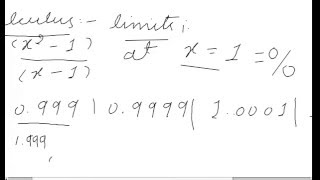 lculus:- limits;
(x²-1)
(x-1) at x = 1 = %
0.999 | 0.9999 | 1.0001 |
1.999